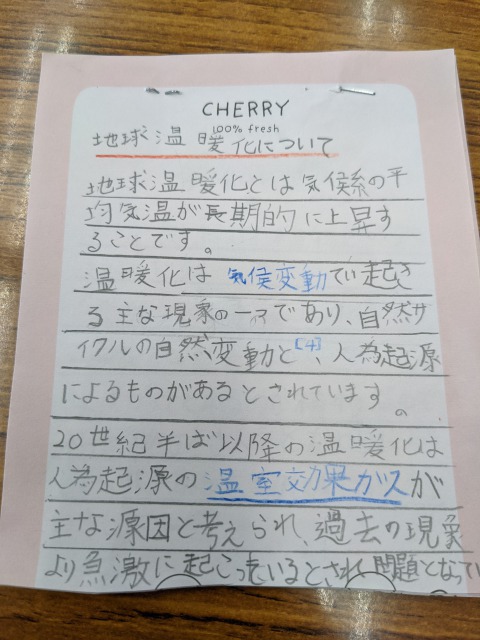 CHERRY
100% fresh
地球温暖化について
地球温暖化とは気候系の平
均気温が長期的に上昇す
ることです。
温暖化は気侯変動でい起き
る主な現象の一つであり、自然サ
イクルの自然変動と[4]、人為起源
によるものがあるとされています。
20世紀半ば以降の温暖化は
人為起源の温室効果ガスが
主な源因と考えられ、過去の現象
より急激に起こっているとされ問題となってい